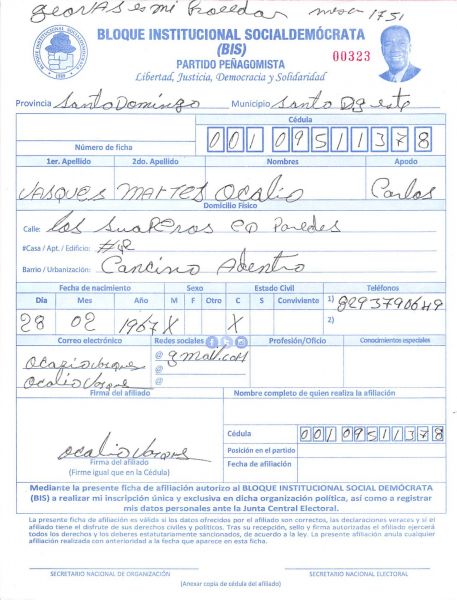 es mi
mesa 1751
BLOQUE INSTITUCIONAL SOCIALDEMÓCRATA
(BIS)
PARTIDO PEÑAGOMISTA
Libertad, Justicia, Democracia y Solidaridad
00323
Provincia Santo Domingo Municipio Santo Dgo este
Número de ficha
Cédula
001 0951137 8
1er. Apellido 2do. Apellido Nombres Apodo
VASQUES MARTES Ocalio Carlos
Domicilio Físico
Calle: Los Paredes
#Casa / Apt. / Edificio: #42
Barrio / Urbanización: Cancino Adentro
Fecha de nacimiento Sexo Estado Civil Teléfonos
Día Mes Año M F Otro C S Conviviente 1) 8293790649
28 02 1967 X X 2)
Correo electrónico Redes sociales Profesión/Oficio Conocimientos especiales
@ gmail.com
Ocalio Vasques @
@
Firma del afiliado Nombre completo de quien realiza la afiliación
Cédula 001 0951137 8
Posición en el partido
Ocalio Vasques
Firma del afiliado Fecha de afiliación
(Firme igual que en la Cédula)
Mediante la presente ficha de afiliación autorizo al BLOQUE INSTITUCIONAL SOCIAL DEMÓCRATA
(BIS) a realizar mi inscripción única y exclusiva en dicha organización política, así como a registrar
mis datos personales ante la Junta Central Electoral.
La presente ficha de afiliación es válida si los datos ofrecidos por el afiliado son correctos, las declaraciones veraces y si el
afiliado tiene el disfrute de sus derechos civiles y politicos. Tras su recepción, sello y firma autorizadas el afiliado ejercerá
todos los derechos y los deberes estatutariamente sancionados, de acuerdo a la ley. La presente afiliación anula cualquier
afiliación realizada con anterioridad a la fecha que aparece en esta ficha.
SECRETARIO NACIONAL DE ORGANIZACIÓN SECRETARIO NACIONAL ELECTORAL
(Anexar copia de cédula del afiliado)